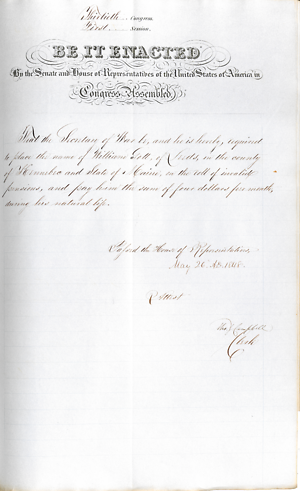 Thirtieth Congress
First Session
BE IT ENACTED
By the Senate and House of Representatives of the United States of America in
Congress Assembled
That the Secretary of War be, and he is hereby, required
to place the name of Williams of Leeds, in the county
of Kennebec and state of Maine, on the roll of invalid
pensions, and pay him the sum of four dollars per month,
during his natural life.
Passed the House of Representatives,
May 26. AD. 1848
Attest
Campbell
Clerk